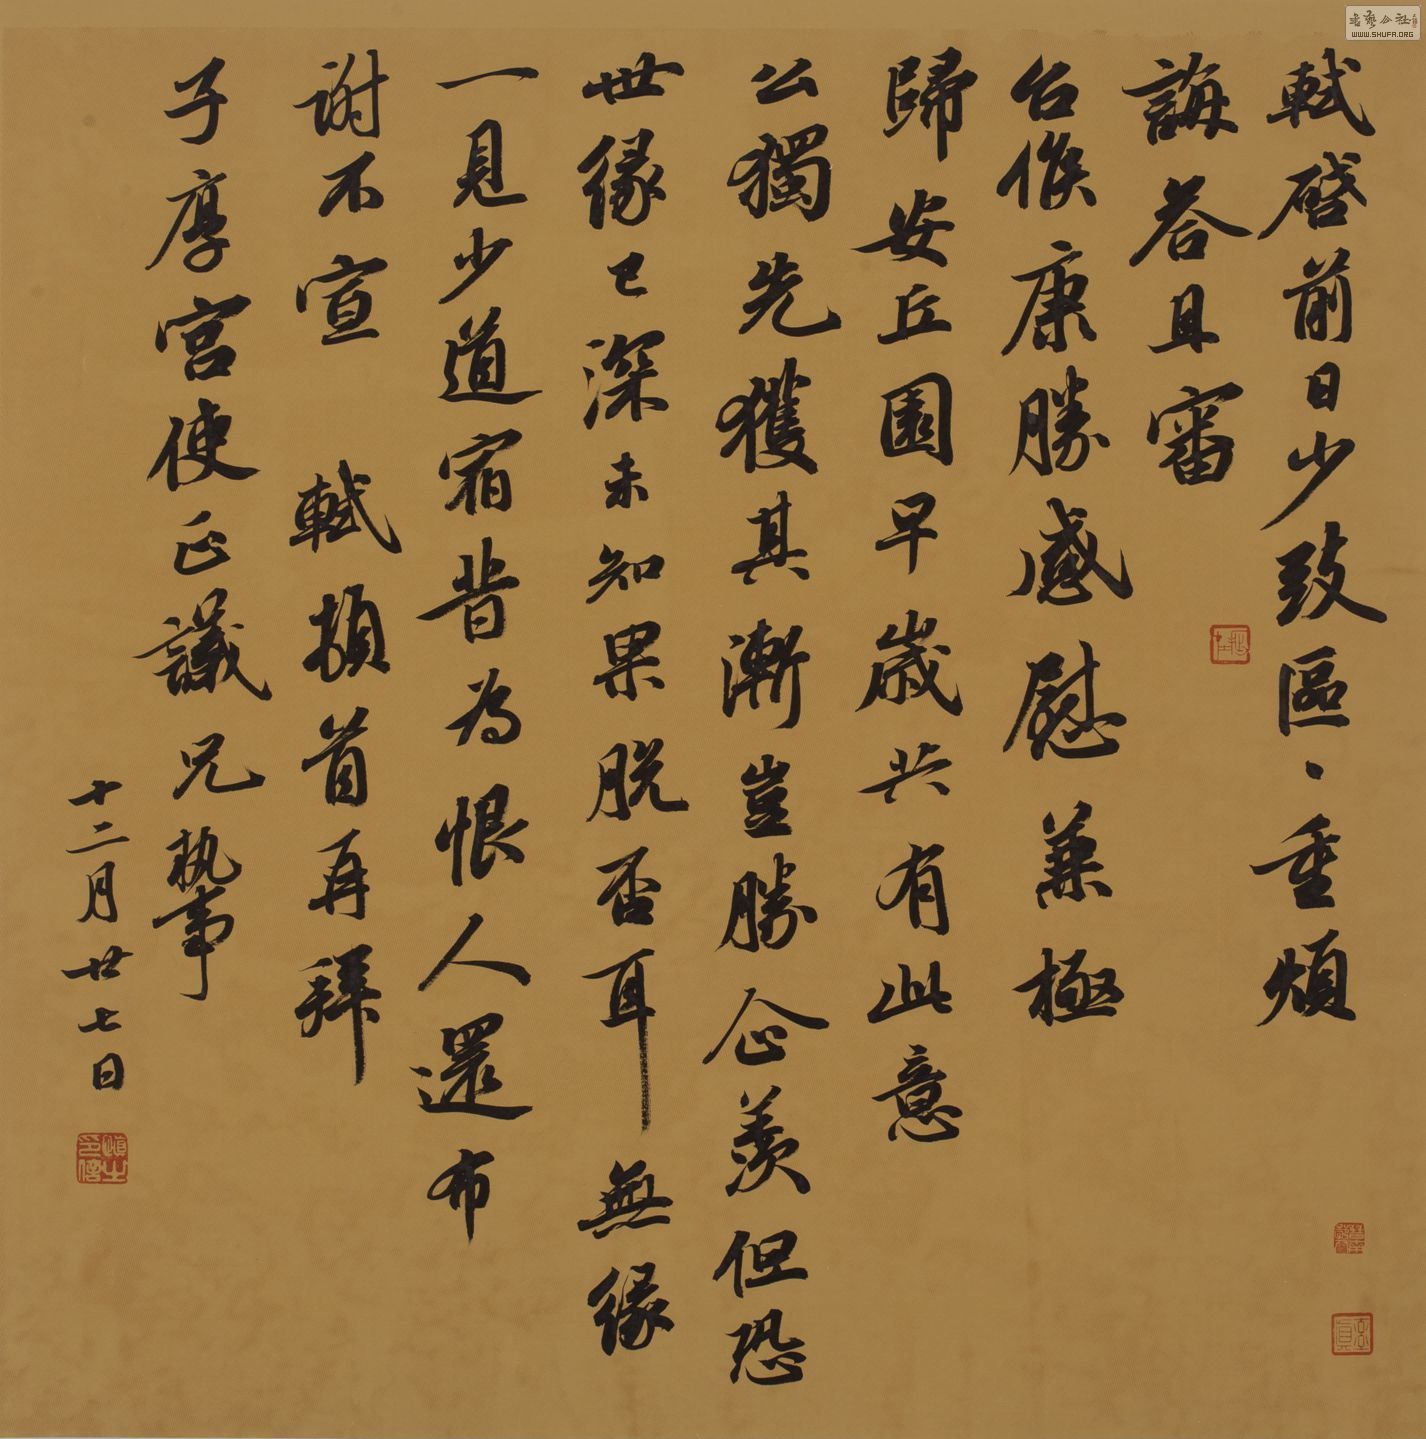 軾啓前日少致區、重煩
誨荅且審
台候康勝感慰兼極
歸安丘園早歲共有此意
公獨先獲其漸豈勝企羨但恐
世緣已深未知果脫否耳無緣
一見少道宿昔為恨人還布
謝不宣 軾頓首再拜
子厚宮使正議兄執事
十二月廿七日
WWW.SHUFA.ORG